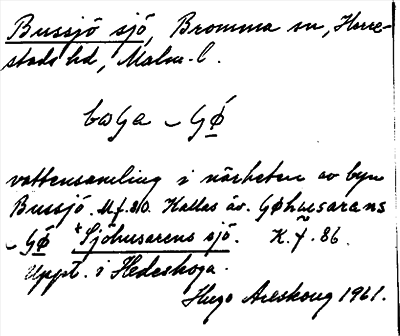 Bussjö sjö, Bromma sn, Herre-
stads hd, Malm. l.
bosa – Gǿ
vattensamling i närheten av byn
Bussjö. Mf. 810. Kallas äv. Gøhusarans
– Gǿ + Sjöhusarens sjö. K. f. 86.
Uppt. i Hedeskoga.
Hugo Areskoug 1961.